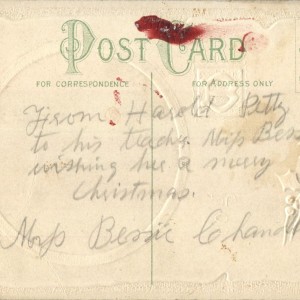 POST CARD
FOR CORRESPONDENCE
FOR ADDRESS ONLY
From Harold Petty
to his teacher Miss Bess
wishing her a merry
Christmas.
Miss Bessie Chandl